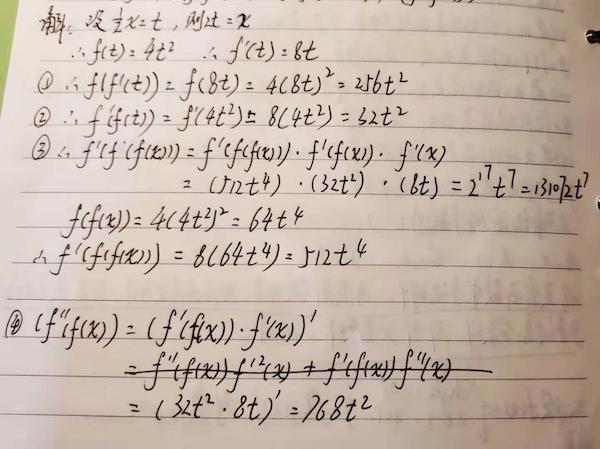 解: 设 ½x=t, 则2t=x
∴f(t)=4t² ∴f'(t)=8t
① ∴f(f'(t))=f(8t)=4(8t)²=256t²
② ∴f'(f(t))=f'(4t²)=8(4t²)=32t²
③ ∴f'(f(f(x)))=f'(f(f(x)))·f'(f(x))·f'(x)
=(512t⁴)·(32t²)·(8t)=2¹⁷t⁷=131072t⁷
f(f(x))=4(4t²)²=64t⁴
∴f'(f(f(x)))=8(64t⁴)=512t⁴
④ (f''(f(x))=(f'(f(x))·f'(x))'
=f''(f(x))f'²(x)+f'(f(x))f''(x)
=(32t²·8t)'=768t²